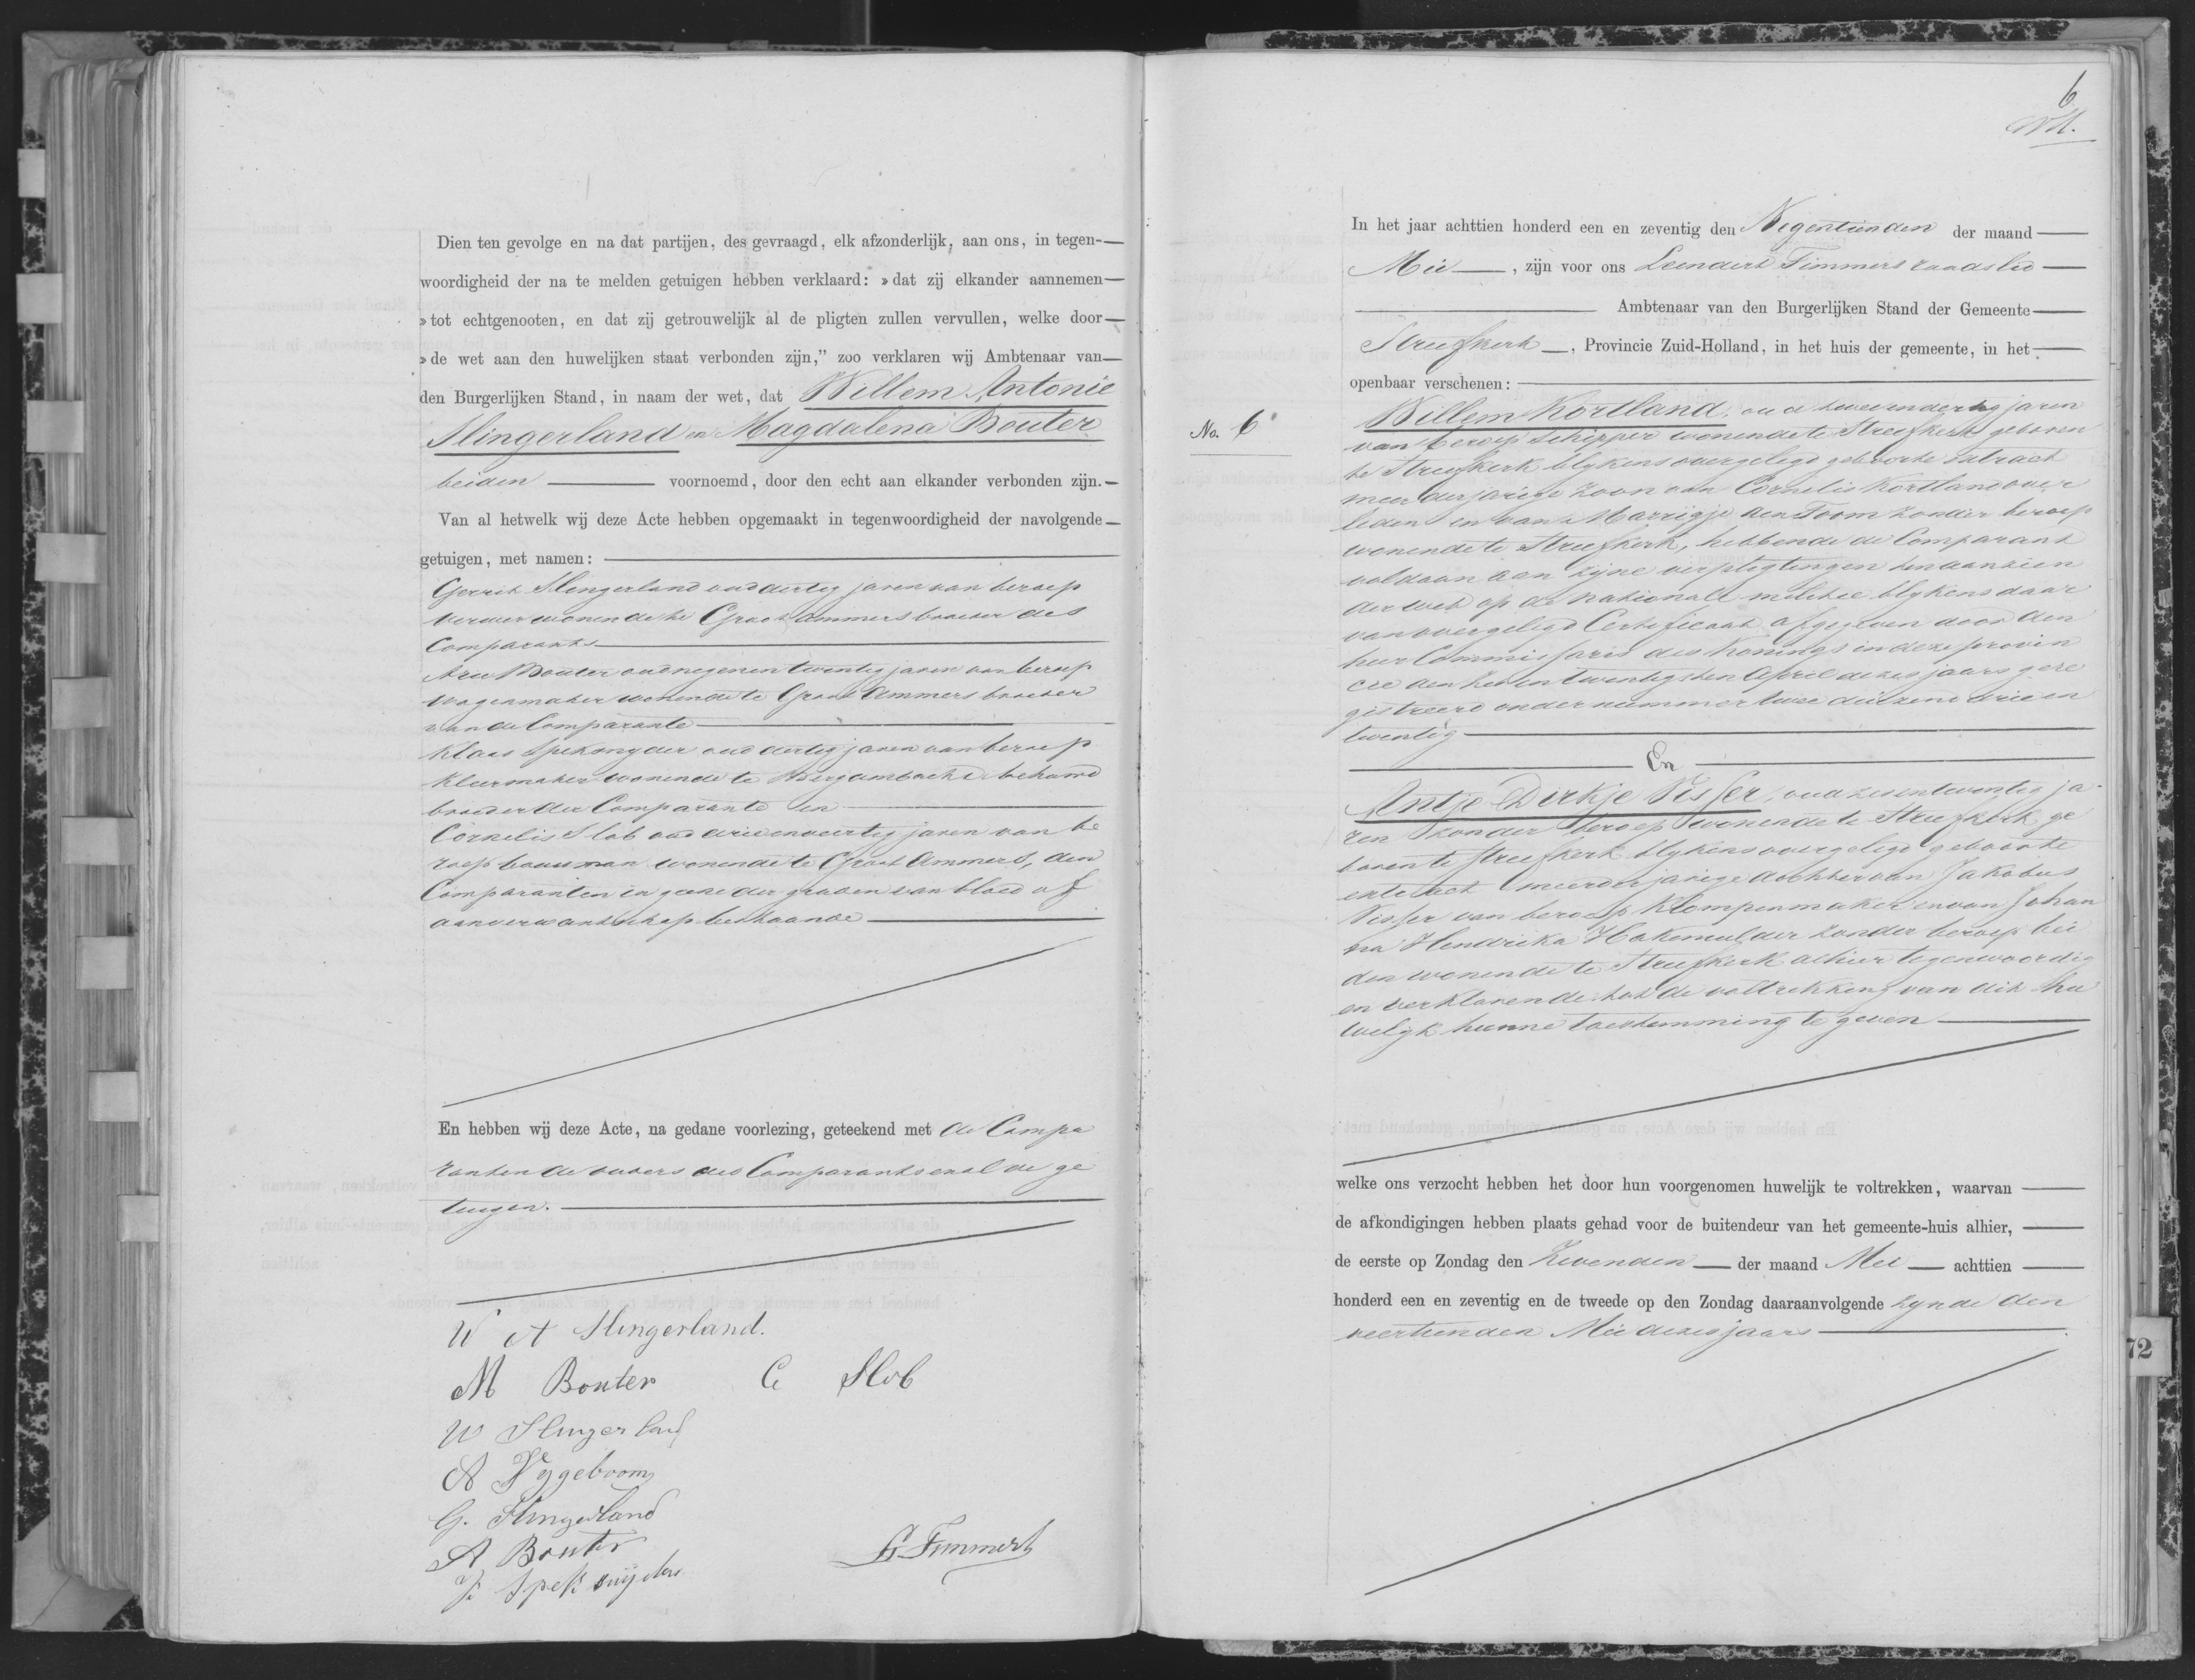 Dien ten gevolge en na dat partijen, des gevraagd, elk afzonderlijk, aan ons, in tegen-
woordigheid der na te melden getuigen hebben verklaard: »dat zij elkander aannemen
»tot echtgenooten, en dat zij getrouwelijk al de pligten zullen vervullen, welke door
»de wet aan den huwelijken staat verbonden zijn,” zoo verklaren wij Ambtenaar van
den Burgerlijken Stand, in naam der wet, dat Willem Antonie
Slingerland en Magdalena Bouter
beiden voornoemd, door den echt aan elkander verbonden zijn.
Van al hetwelk wij deze Acte hebben opgemaakt in tegenwoordigheid der navolgende
getuigen, met namen:
Gerrit Slingerland oud dertig jaren van beroep
verwer wonende te Groot Ammers broeder des
Comparants
Arie Bouter oud negenentwintig jaren van beroep
wagenmaker wonende te Groot Ammers broeder
van de Comparante
Klaas Speksnyder oud dertig jaren van beroep
kleermaker wonende te Bergambacht behuwd
broeder der Comparante en
Cornelis Slob oud drieenveertig jaren van be
roep bouwman wonende te Groot Ammers, den
Comparanten in geene der graden van bloed of
aanverwantschap bestaande
En hebben wij deze Acte, na gedane voorlezing, geteekend met de Compa
ranten de ouders des Comparants en al de ge
tuigen.
W A Slingerland.
M Bouter C Slob
W Slingerland
A Vygeboom
G. Slingerland
A Bouter
K Speksnijder
L Timmers
6
In het jaar achttien honderd een en zeventig den Negentienden der maand
Mei, zijn voor ons Leendert Timmers raadslid
Ambtenaar van den Burgerlijken Stand der Gemeente
Streefkerk, Provincie Zuid-Holland, in het huis der gemeente, in het
openbaar verschenen:
No. 6
Willem Kortland, oud tweeendertig jaren
van beroep schipper wonende te Streefkerk geboren
te Streefkerk blykens overgelegd geboorte extract
meerderjarige zoon van Cornelis Kortland over
leden en van Marrigje den Toom zonder beroep
wonende te Streefkerk, hebbende de Comparant
voldaan aan zyne verpligtingen ten aanzien
der wet op de nationale militie blykens daar
van overgelegd Certificaat afgegeven door den
heer Commissaris des Konings in deze provin
cie den zevenentwintigsten April dezes jaars gere
gistreerd onder nummer twee duizend drie en
twintig
En
Antje Dirkje Visser, oud zesentwintig ja-
ren zonder beroep wonende te Streefkerk ge
boren te Streefkerk blykens overgelegd geboorte
extract meerderjarige dochter van Jakobus
Visser van beroep Klompenmaker en van Johan
na Hendrika Hakemulder zonder beroep bei
den wonende te Streefkerk alhier tegenwoordig
en verklarende tot de voltrekking van dit hu
welyk hunne toestemming te geven
welke ons verzocht hebben het door hun voorgenomen huwelijk te voltrekken, waarvan
de afkondigingen hebben plaats gehad voor de buitendeur van het gemeente-huis alhier,
de eerste op Zondag den Zevenden der maand Mei achttien
honderd een en zeventig en de tweede op den Zondag daaraanvolgende zynde den
veertienden Mei dezes jaars
72